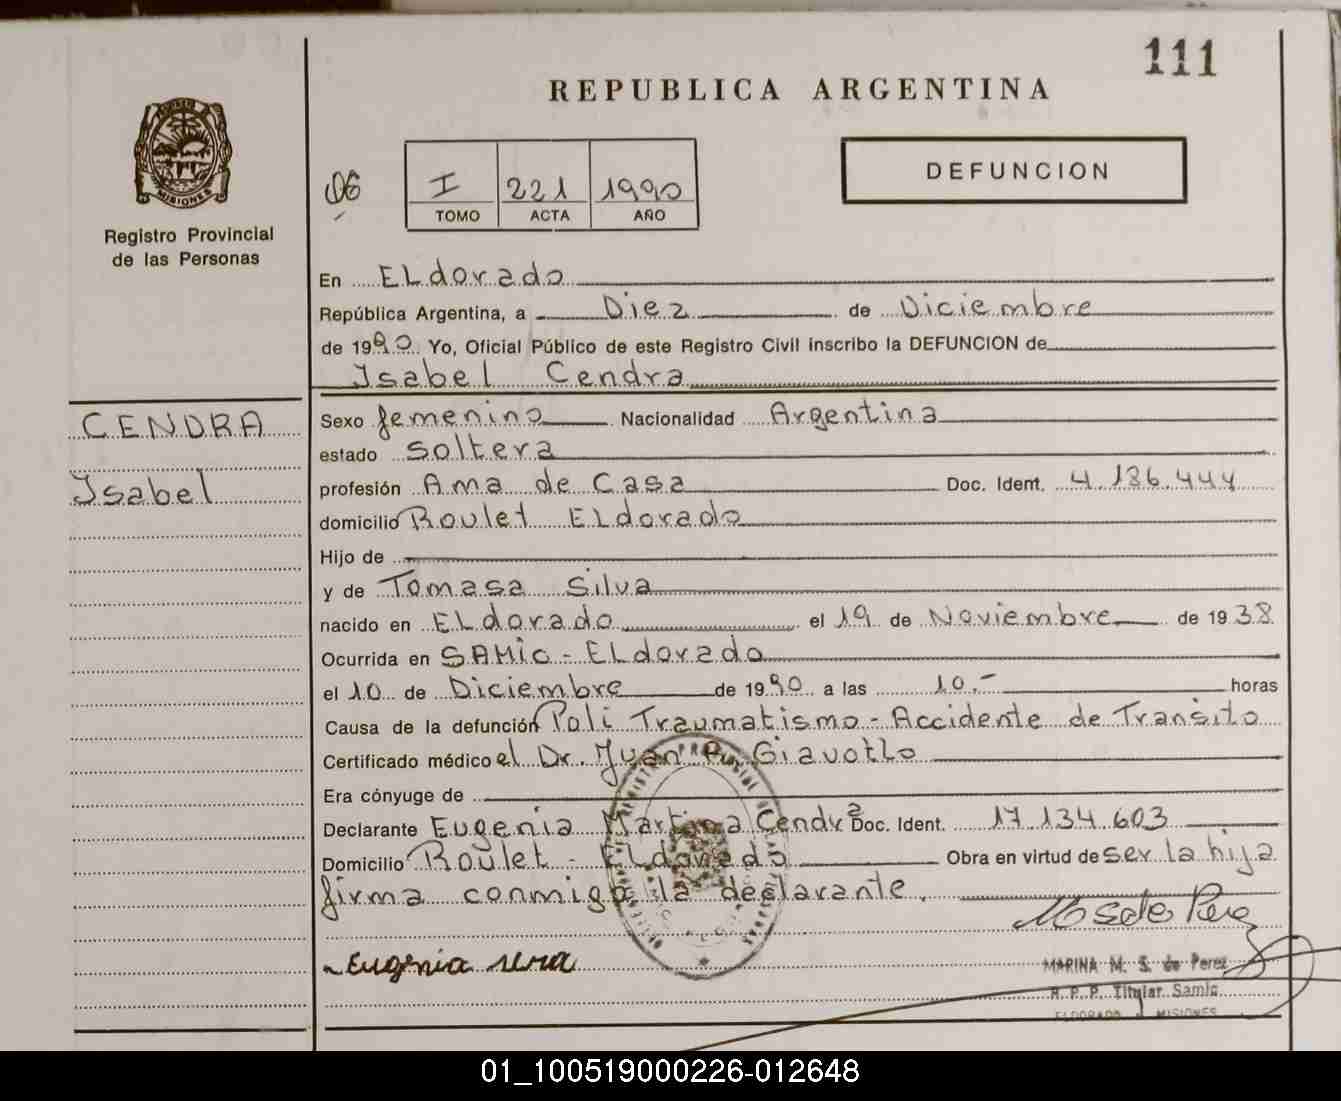 111
REPUBLICA ARGENTINA
MISIONES
Registro Provincial
de las Personas
06
I 221 1990
TOMO ACTA AÑO
DEFUNCION
En ELdorado
República Argentina, a Diez de Diciembre
de 1990 Yo, Oficial Público de este Registro Civil inscribo la DEFUNCION de
Isabel Cendra
CENDRA
Isabel
Sexo femenino Nacionalidad Argentina
estado soltera
profesión Ama de Casa Doc. Ident. 4.186.444
domicilio Roulet ELdorado
Hijo de
y de Tomasa Silva
nacido en ELdorado el 19 de Noviembre de 1938
Ocurrida en SAMIC - ELdorado
el 10 de Diciembre de 1990 a las 10.- horas
Causa de la defunción Poli Traumatismo - Accidente de Transito
Certificado médico el Dr. Juan
Era cónyuge de
Declarante Eugenia Martina Cendra Doc. Ident. 17.134.603
Domicilio Roulet - ELdorado Obra en virtud de ser la hija
firma conmigo la declarante.
Eugenia
MARINA M. S. de Perez
R. P. P. Titular Samic
ELDORADO MISIONES
01_100519000226-012648